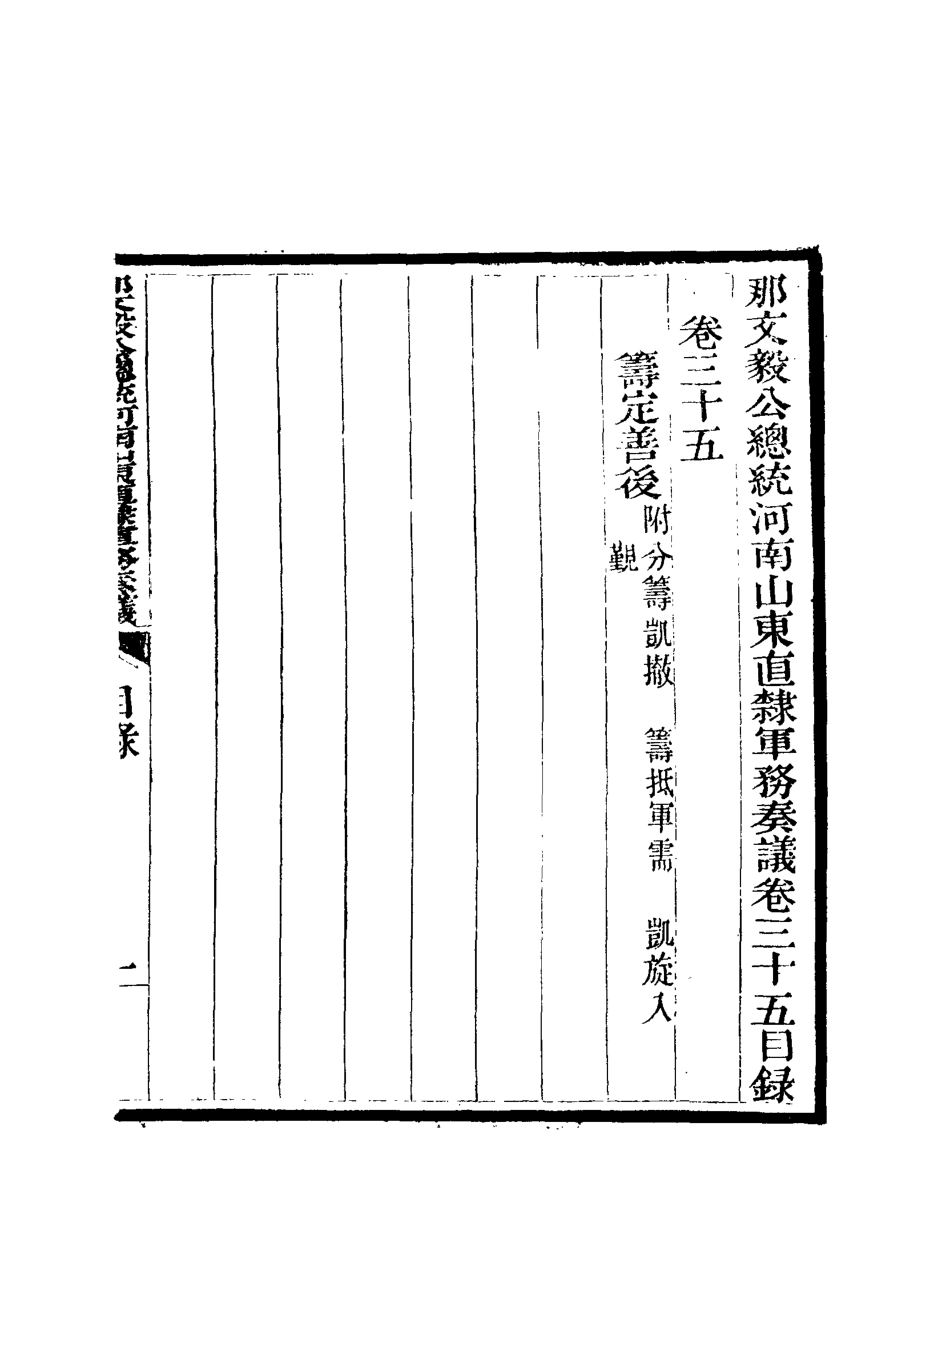 那文毅公總統河南山東直隸軍務奏議卷三十五目錄
卷三十五
籌定善後
附分籌凱撤　籌抵軍需　凱旋入
覲
那文毅公總統河南山東直隸軍務奏議　目錄　一